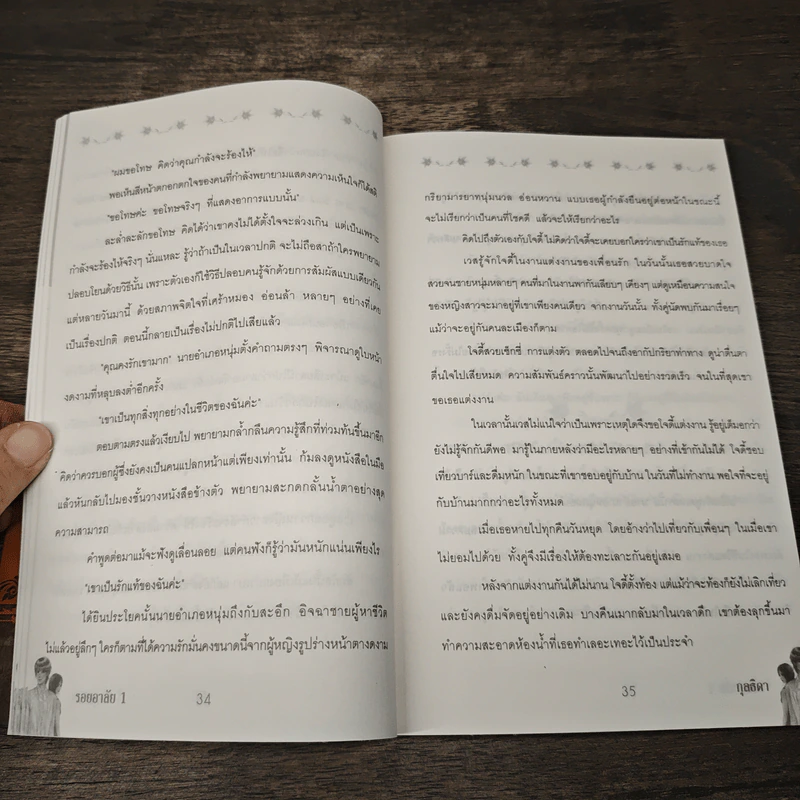 "ผมขอโทษ คิดว่าคุณกำลังจะร้องไห้"
พอเห็นสีหน้าตกอกตกใจของคนที่กำลังพยายามแสดงความเห็นใจก็ได้สติ
"ขอโทษค่ะ ขอโทษจริงๆ ที่แสดงอาการแบบนั้น"
ละล่ำละลักขอโทษ คิดได้ว่าเขาคงไม่ได้ตั้งใจจะล่วงเกิน แต่เป็นเพราะ
กำลังจะร้องไห้จริงๆ นั่นแหละ รู้ว่าถ้าเป็นในเวลาปกติ จะไม่ถือสาถ้าใครพยายาม
ปลอบโยนด้วยวิธีนั้น เพราะตัวเองก็ใช้วิธีปลอบคนรู้จักด้วยการสัมผัสแบบเดียวกัน
แต่หลายวันมานี้ ด้วยสภาพจิตใจที่เศร้าหมอง อ่อนล้า หลายๆ อย่างที่เคย
เป็นเรื่องปกติ ตอนนี้กลายเป็นเรื่องไม่ปกติไปเสียแล้ว
"คุณคงรักเขามาก" นายอำเภอหนุ่มตั้งคำถามตรงๆ พิจารณาดูใบหน้า
งดงามที่หลุบลงต่ำอีกครั้ง
"เขาเป็นทุกสิ่งทุกอย่างในชีวิตของฉันค่ะ"
ตอบตามตรงแล้วเงียบไป พยายามกล้ำกลืนความรู้สึกที่ท่วมท้นขึ้นมาอีก
คิดว่าควรบอกผู้ซึ่งยังคงเป็นคนแปลกหน้าแต่เพียงเท่านั้น ก้มลงดูหนังสือในมือ
แล้วหันกลับไปมองชั้นวางหนังสือข้างตัว พยายามสะกดกลั้นน้ำตาอย่างสุด
ความสามารถ
คำพูดต่อมาแม้จะฟังดูเลื่อนลอย แต่คนฟังก็รู้ว่ามันหนักแน่นเพียงไร
"เขาเป็นรักแท้ของฉันค่ะ"
ได้ยินประโยคนั้นนายอำเภอหนุ่มถึงกับสะอึก อิจฉาชายผู้หาชีวิต
ไม่แล้วอยู่ลึกๆ ใครก็ตามที่ได้ความรักมั่นคงขนาดนี้จากผู้หญิงรูปร่างหน้าตางดงาม
รอยอาลัย 1 34
กริยามารยาทนุ่มนวล อ่อนหวาน แบบเธอผู้กำลังยืนอยู่ต่อหน้าในขณะนี้
จะไม่เรียกว่าเป็นคนที่โชคดี แล้วจะให้เรียกว่าอะไร
คิดไปถึงตัวเองกับโจดี้ ไม่คิดว่าโจดี้จะเคยบอกใครว่าเขาเป็นรักแท้ของเธอ
เวสรู้จักโจดี้ในงานแต่งงานของเพื่อนรัก ในวันนั้นเธอสวยบาดใจ
สวยจนชายหนุ่มหลายๆ คนที่มาในงานพากันเลียบๆ เคียงๆ แต่ดูเหมือนความสนใจ
ของหญิงสาวจะมาอยู่ที่เขาเพียงคนเดียว จากงานวันนั้น ทั้งคู่นัดพบกันมาเรื่อยๆ
แม้ว่าจะอยู่กันคนละเมืองก็ตาม
โจดี้สวยเซ็กซี่ การแต่งตัว ตลอดไปจนถึงอากัปกริยาท่าทาง ดูน่าตื่นตา
ตื่นใจไปเสียหมด ความสัมพันธ์คราวนั้นพัฒนาไปอย่างรวดเร็ว จนในที่สุดเขา
ขอเธอแต่งงาน
ในเวลานั้นเวสไม่แน่ใจว่าเป็นเพราะเหตุใดจึงขอโจดี้แต่งงาน รู้อยู่เต็มอกว่า
ยังไม่รู้จักกันดีพอ มารู้ในภายหลังว่ามีอะไรหลายๆ อย่างที่เข้ากันไม่ได้ โจดี้ชอบ
เที่ยวบาร์และดื่มหนัก ในขณะที่เขาชอบอยู่กับบ้าน ในวันที่ไม่ทำงาน พอใจที่จะอยู่
กับบ้านมากกว่าอะไรทั้งหมด
เมื่อเธอหายไปทุกคืนวันหยุด โดยอ้างว่าไปเที่ยวกับเพื่อนๆ ในเมื่อเขา
ไม่ยอมไปด้วย ทั้งคู่จึงมีเรื่องให้ต้องทะเลาะกันอยู่เสมอ
หลังจากแต่งงานกันได้ไม่นาน โจดี้ตั้งท้อง แต่แม้ว่าจะท้องก็ยังไม่เลิกเที่ยว
และยังคงดื่มจัดอยู่อย่างเดิม บางคืนเมากลับมาในเวลาดึก เขาต้องลุกขึ้นมา
ทำความสะอาดห้องน้ำที่เธอทำเลอะเทอะไว้เป็นประจำ
35 กุลสิดา